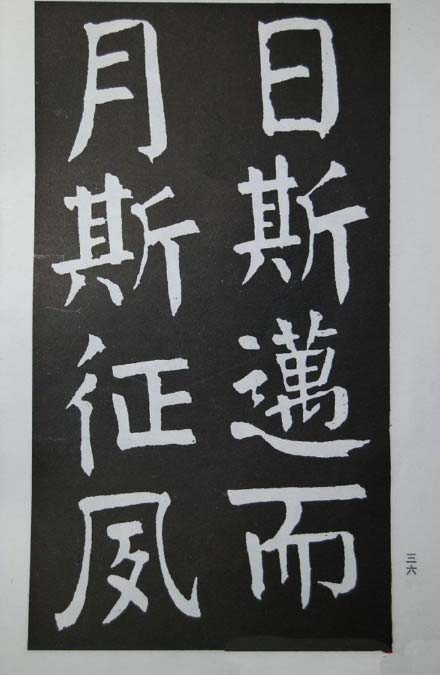 日斯邁而
月斯征夙
三六